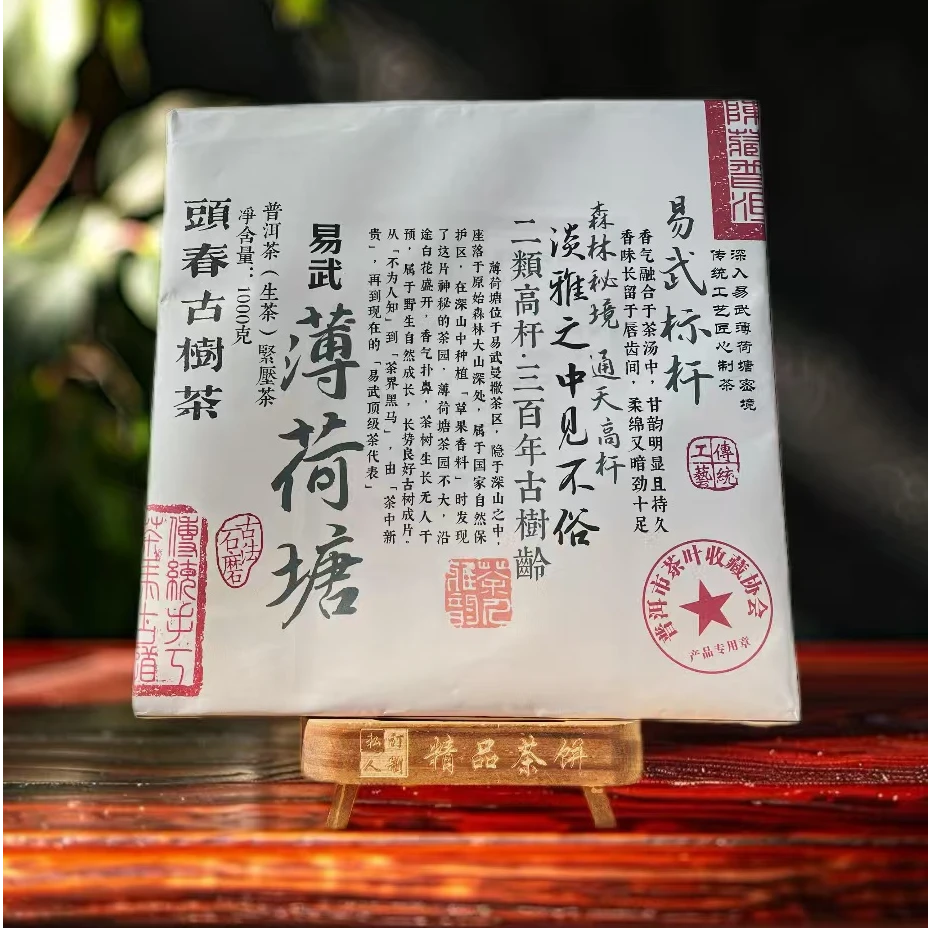 陳藏普洱
深入易武薄荷塘密境
传统工艺匠心制茶
傳統
工藝
易武标杆
香气融合于茶汤中，甘韵明显且持久
香味长留于唇齿间，柔绵又暗劲十足
普洱市茶叶收藏协会
产品专用章
森林秘境 通天高杆
淡雅之中见不俗
二類高杆·三百年古樹齡
茶人
雅韻
薄荷塘位于易武曼撒茶区，隐于深山之中，
座落于原始森林大山深处，属于国家自然保
护区，在深山中种植「草果香料」时发现
了这片神秘的茶园，薄荷塘茶园不大，沿
途白花盛开，香气扑鼻，茶树生长无人干
预，属于野生自然成长，长势良好古树成片。
从「不为人知」到「茶界黑马」，由「茶中新
贵」，再到现在的「易武顶级茶代表」
易武
薄荷塘
普洱茶（生茶）緊壓茶
净含量：1000克
古法
石磨
頭春古樹茶
傳統手工
茶馬古道
私人
订制
精品茶饼